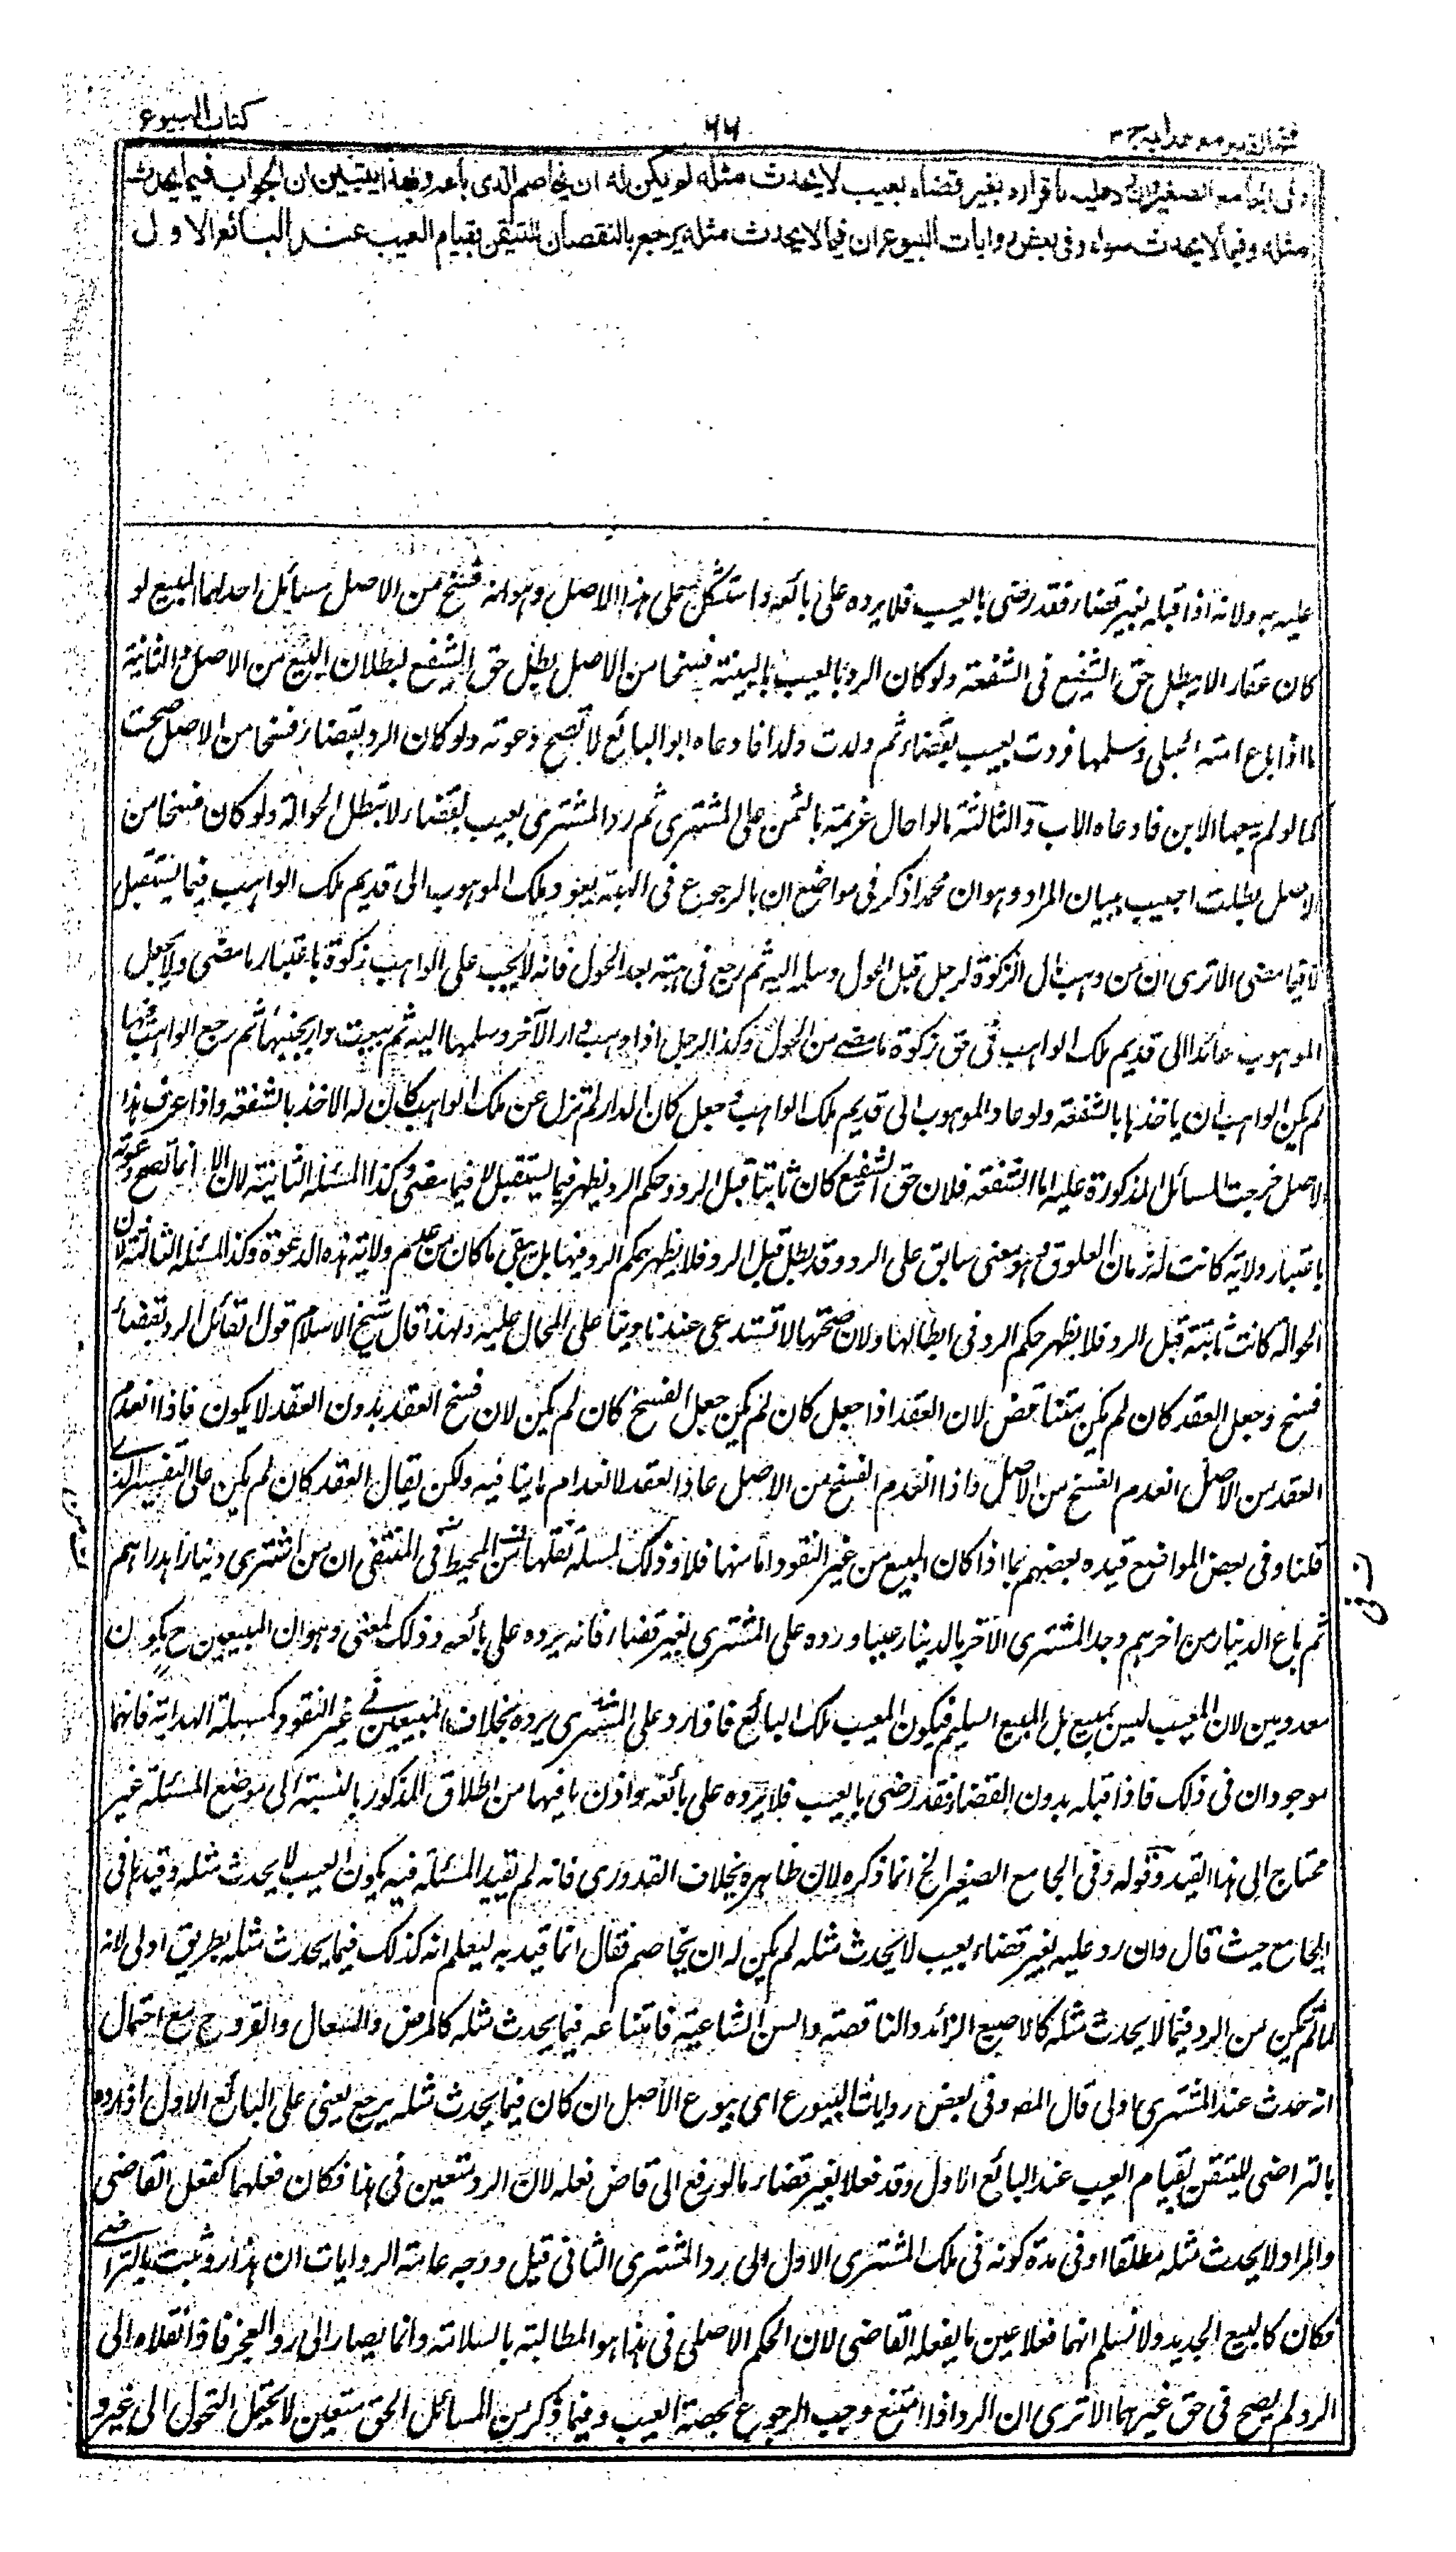 كتاب البيوع
٦٦
فتح القدير مع هداية ج ٣
وفي الجامع الصغير وان رد عليه باقراره بغير قضاء بعيب لا يحدث مثله لم يكن له ان يخاصم الذي باعه وبهذا يتبين ان الجواب فيما يحدث
مثله وفيما لا يحدث سواء وفي بعض روايات البيوع ان فيما لا يحدث مثله يرجع بالنقصان للتيقن بقيام العيب عند البائع الاول
عليه به ولانه اذا قبله بغير قضاء فقد رضي بالعيب فلا يرده على بائعه واستشكل على هذا الاصل وهو انه فسخ من الاصل مسائل احدلها المبيع لو
كان عقارا لا يبطل حق الشفيع في الشفعة ولو كان الرد بالعيب بالبينة فسخا من الاصل بطل حق الشفيع لبطلان البيع من الاصل والثانية
ما اذا باع امته الحبلى وسلمها فردت بعيب بقضاء ثم ولدت ولدا فادعاه ابو البائع لا تصح دعوته ولو كان الرد بقضاء فسخا من الاصل صحت
كما لو لم يبعها الابن فادعاه الاب والثالثة ما لو احال غريمه بالثمن على المشتري ثم رد المشترى بعيب بقضاء لا تبطل الحوالة ولو كان فسخا من
الاصل بطلت اجيب ببيان المراد وهو ان محمدا ذكر في مواضع ان بالرجوع في الهبة يعود ملك الموهوب الى قديم ملك الواهب فيما يستقبل
لا فيما مضى الا ترى ان من وهب مال الزكوة لرجل قبل الحول وسلمه اليه ثم رجع في هبته بعد الحول فانه لا يجب على الواهب زكوة باعتبار ما مضى ولا يجعل
الموهوب عائدا الى قديم ملك الواهب في حق زكوة ما مضى من الحول وكذا الرجل اذا وهب دار الآخر وسلمها اليه ثم بيعت دار بجنبها ثم رجع الواهب فيها
لم يكن الواهب ان ياخذها بالشفعة ولو عاد الموهوب الى قديم ملك الواهب وجعل كان الدار لم تزل عن ملك الواهب كان له الاخذ بالشفعة واذا عرف هذا
الاصل خرجت المسائل المذكورة عليه اما الشفعة فلان حق الشفيع كان ثابتا قبل الرد وحكم الرد يظهر فيما يستقبل لا فيما مضى وكذا المسئلة الثانية لان الاب انما تصح دعوته
باعتبار ولاية كانت له زمان العلوق وهو معنى سابق على الرد وقد بطل قبل الرد فلا يظهر حكم الرد فيها بل يبقى ما كان من عدم ولاية هذه الدعوة وكذا المسئلة الثالثة لان
الحوالة كانت ثابتة قبل الرد فلا يظهر حكم الرد في ابطالها ولان صحتها لا تستدعى عندنا دينا على المحال عليه ولهذا قال شيخ الاسلام قول القائل الرد بقضاء
فسخ وجعل العقد كان لم يكن متناقض لان العقد اذا جعل كان لم يكن جعل الفسخ كان لم يكن لان فسخ العقد بدون العقد لا يكون فاذا انعدم
العقد من الاصل انعدم الفسخ من الاصل واذا انعدم الفسخ من الاصل عاد العقد لانعدام ما ينافيه ولكن يقال العقد كان لم يكن على التفسير الذي
قلنا وفي بعض المواضع قيده بعضهم بما اذا كان المبيع من غير النقود اما منها فلا وذلك لمسئلة نقلها من المحيط في المنتقى ان من اشترى دينارا بدراهم
ثم باع الدينار من اخر ثم وجد المشتري الآخر بالدينار عيبا ورده على المشتري بغير قضاء فانه يرده على بائعه وذلك لمعنى وهو ان المبيعين ح يكون
معدومين لان المعيب ليس بمبيع بل المبيع السليم فيكون المعيب ملك البائع فاذا رد على المشترى يرده بخلاف المبيعين في غير النقود كمسئلة الهداية فانهما
موجودان في ذلك فاذا قبله بدون القضاء فقد رضي بالعيب فلا يرده على بائعه واذن ما فيها من اطلاق المذكور بالنسبة الى موضع المسئلة غير
محتاج الى هذا القيد وقوله وفي الجامع الصغير الخ انما ذكره لان ظاهره بخلاف القدوري فانه لم يقيد المسئلة فيه بكون العيب لا يحدث مثله وقيدها في
الجامع حيث قال وان رد عليه بغير قضاء بعيب لا يحدث مثله لم يكن له ان يخاصم فقال انما قيد به ليعلم انه كذلك فيما يحدث مثله بطريق اولى لانه
لما لم يتمكن من الرد فيما لا يحدث مثله كالاصبع الزائد والناقصة والسن الشاغية فامتناعه فيما يحدث مثله كالمرض والسعال والقروح مع احتمال
انه حدث عند المشتري اولى قال المص وفي بعض روايات البيوع اي بيوع الاصل ان كان فيما لا يحدث مثله يرجع يعني على البائع الاول اذا رده
بالتراضي للتيقن بقيام العيب عند البائع الاول وقد فعلا بغير قضاء ما لو رفع الى قاض فعله لان الرد متعين في هذا فكان فعلهما كفعل القاضي
والمراد لا يحدث مثله مطلقا او في مدة كونه في ملك المشترى الاول الى رد المشترى الثاني قيل ووجه عامة الروايات ان هذا رد ثبت بالتراضي
فكان كالبيع الجديد ولا نسلم انهما فعلا عين ما يفعله القاضي لان الحكم الاصلي في هذا هو المطالبة بالسلامة وانما يصار الى الرد للعجز فاذا نقلاه الى
الرد لم يصح في حق غيرهما الا ترى ان الرد اذا امتنع وجب الرجوع بحصة العيب وفيما ذكر من المسائل الحق متعين لا يحتمل التحول الى غيره و